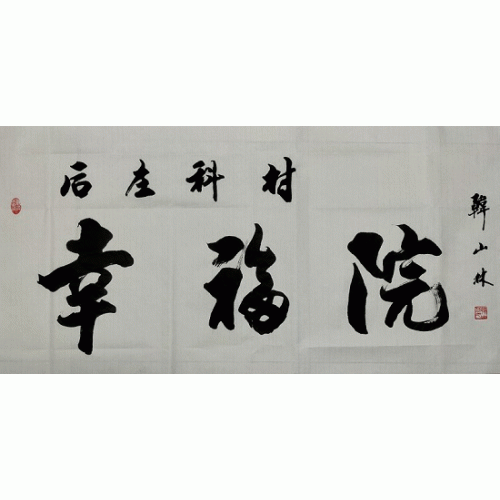 后庄科村
幸福院
韓山林